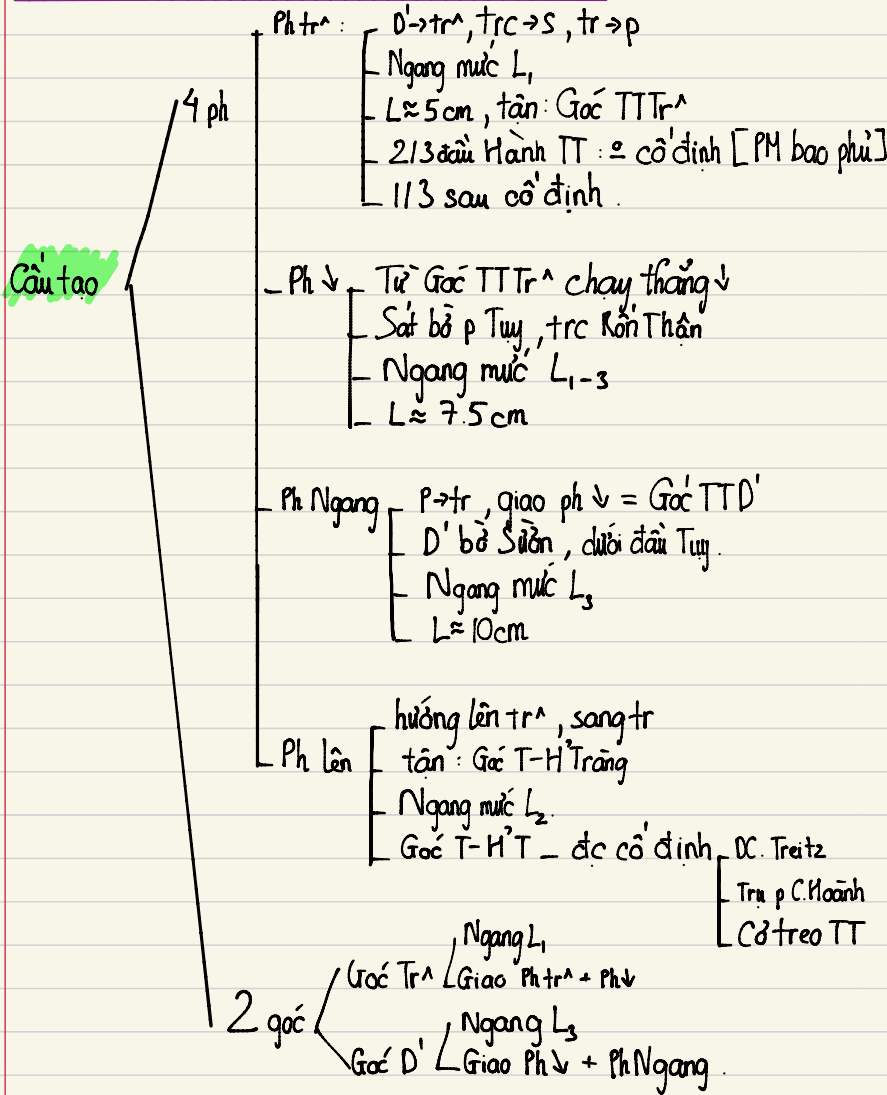 Ph tr^ : D'→tr^, trc→s, tr→p
Ngang mức L₁
4 ph
L≈5cm, tận: Góc TTTr^
2/3 đầu Hành TT : º cố định [PM bao phủ]
1/3 sau cố định.
Cấu tạo
Ph ↓ Từ Góc TTTr^ chạy thẳng ↓
Sát bờ p Tụy, trc Rốn Thận
Ngang mức L₁₋₃
L≈ 7.5cm
Ph Ngang P→tr, giao ph ↓ = Góc TTD'
D' bờ Sườn, dưới đầu Tụy.
Ngang mức L₃
L≈10cm
Ph lên hướng lên tr^, sang tr
tận: Góc T-H'Tràng
Ngang mức L₂.
Góc T-H'T _ đc cố định DC. Treitz
Trụ p C.Hoành
Cơ treo TT
Góc Tr^ Ngang L₁
Giao Ph tr^ + Ph↓
2 góc
Góc D' Ngang L₃
Giao Ph↓ + Ph Ngang.